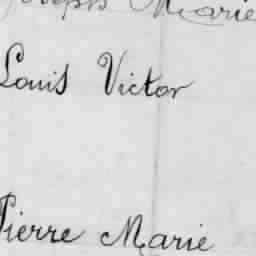 Joseph Marie
Louis Victor
Pierre Marie